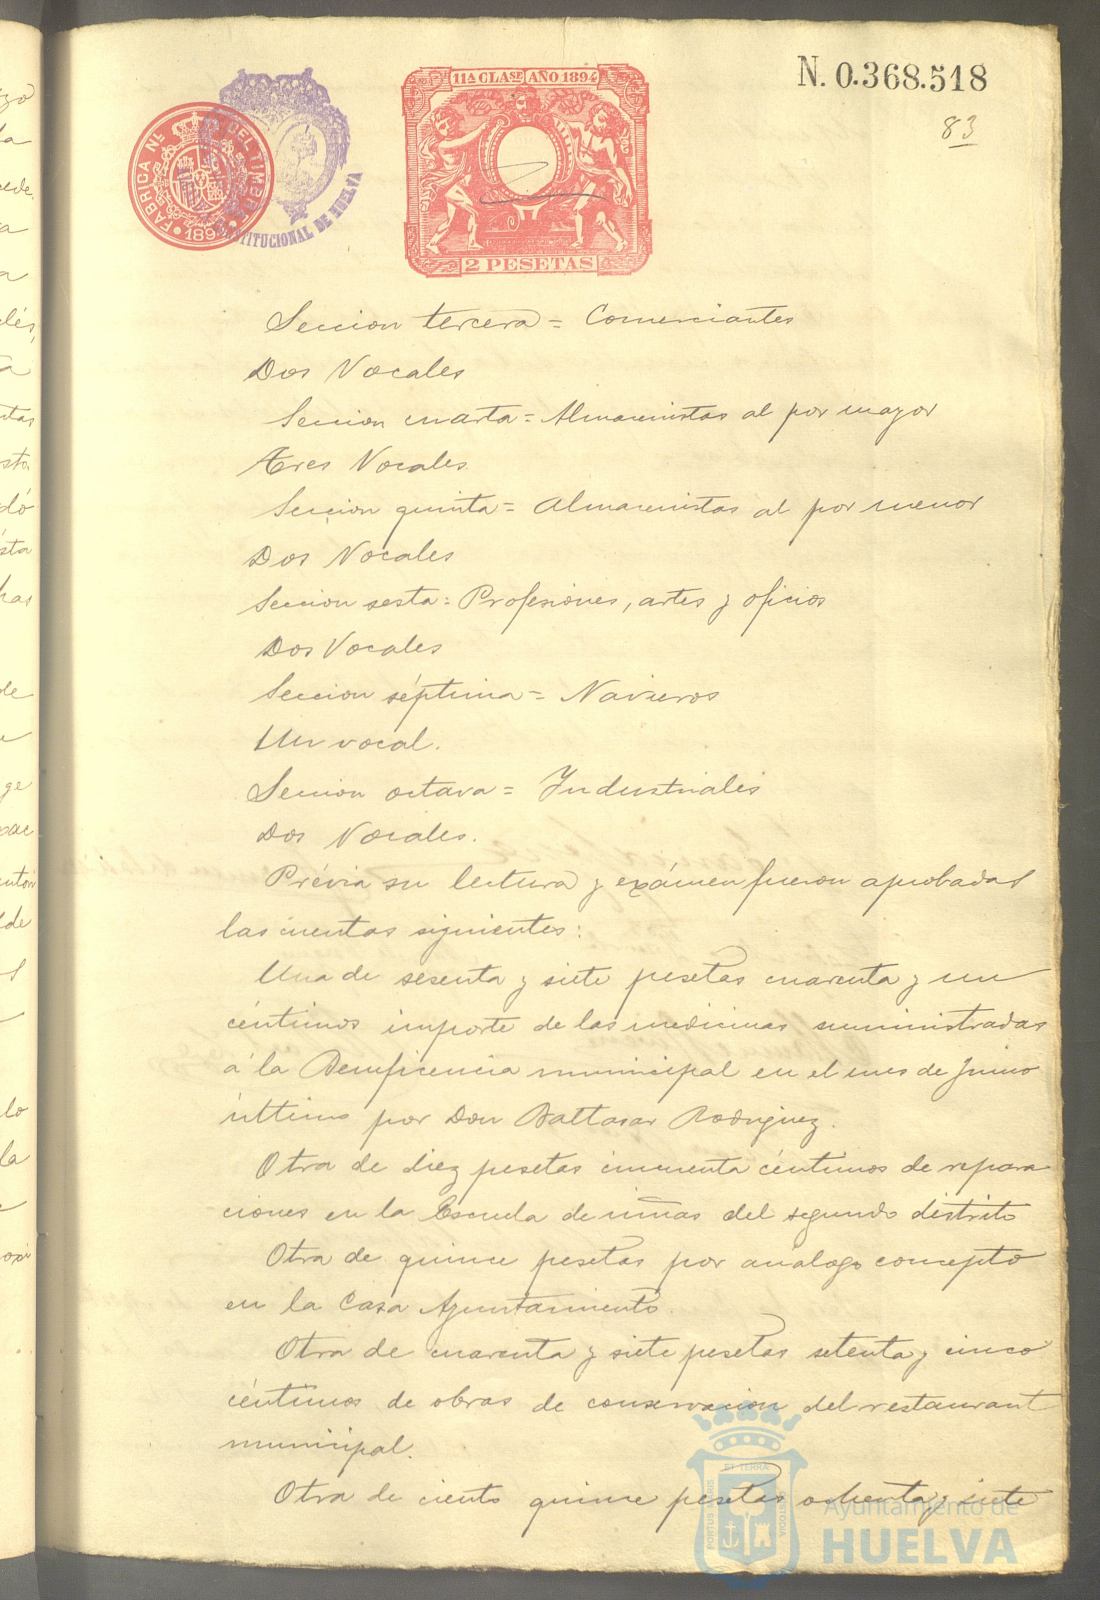 11ª CLASE AÑO 1894
2 PESETAS
FABRICA NL. DEL TIMBRE
189
CONSTITUCIONAL DE HUELVA
N. 0.368.518
83
Seccion tercera = Comerciantes
Dos Vocales
Seccion cuarta = Almacenistas al por mayor
Tres Vocales
Seccion quinta = Almacenistas al por menor
Dos Vocales
Seccion sesta = Profesiones, artes y oficios
Dos Vocales
Seccion séptima = Navieros
Un vocal.
Seccion octava = Industriales
Dos Vocales.
Prévia su lectura y exámen fueron aprobadas
las cuentas siguientes:
Una de sesenta y siete pesetas cuarenta y un
céntimos importe de las medicinas suministradas
á la Beneficencia municipal en el mes de Junio
último por Don Baltasar Rodriguez.
Otra de diez pesetas cincuenta céntimos de repara
ciones en la Escuela de niñas del segundo distrito
Otra de quince pesetas por análogo concepto
en la Casa Ayuntamiento.
Otra de cuarenta y siete pesetas setenta y cinco
céntimos de obras de conservacion del restaurant
municipal.
Otra de ciento quince pesetas ochenta y siete
PORTUS MARIS
ET TERRA
CUSTODIA
Ayuntamiento de
HUELVA